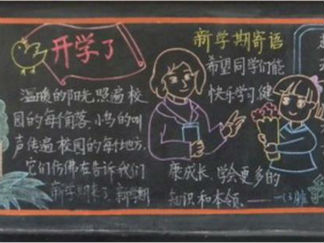 开学了
温暖的阳光照遍校
园的每个角落,小鸟的叫
声传遍校园的每个地方,
它们仿佛在告诉我们
新学期来了,新学期
新学期寄语
希望同学们能
快乐学习健
康成长,学会更多的
知识和本领。